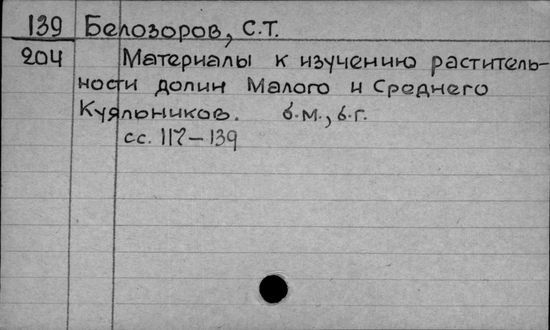 139 Белозоров, С.Т.
204 Материалы к изучению раститель-
ности долин Малого и Среднего
Куяльников. б.м., б.г.
сс. 117-139